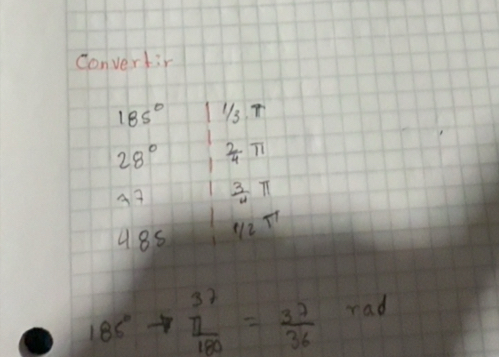 Convertir
185° | 1/3 π
28° | 2/4 π
37 | 3/4 π
485 | 1/2 π
185° → 37 π/180 = 37/36 rad